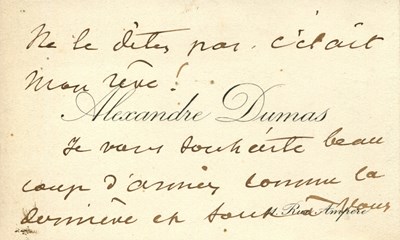 Ne le dites pas. c'était
mon rêve!
Alexandre Dumas
Je vous souhaite beau
coup d'années comme la
dernière et tout à vous
11, Rue Ampère